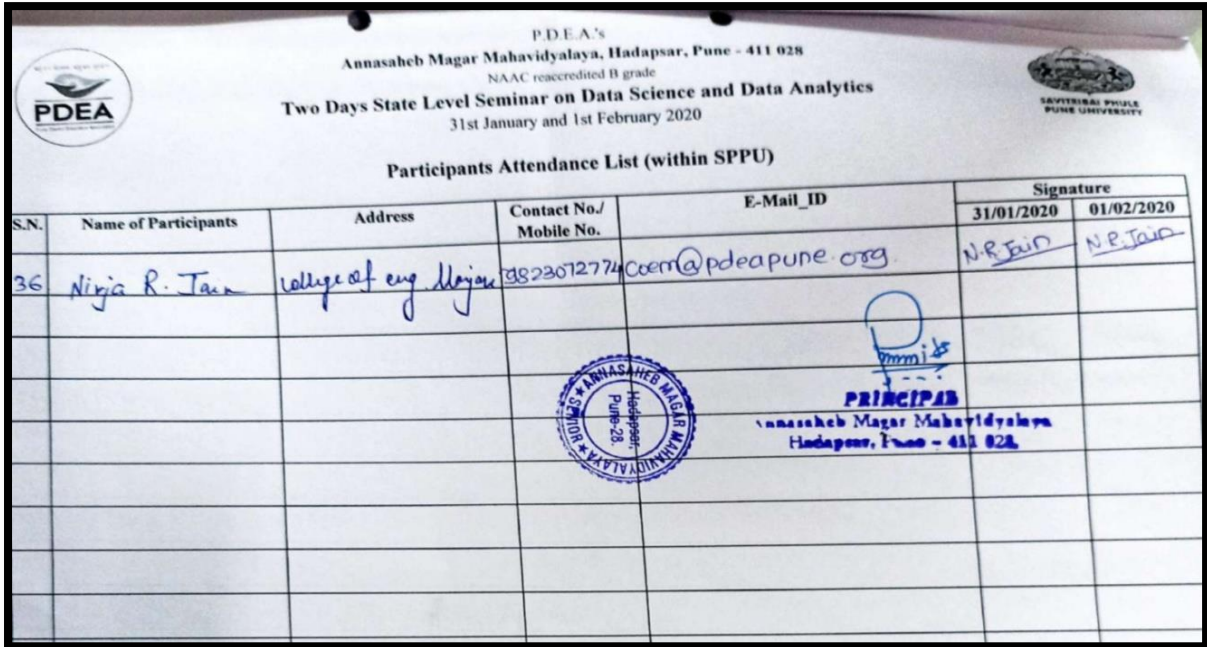 P.D.E.A.'s
Annasaheb Magar Mahavidyalaya, Hadapsar, Pune - 411 028
NAAC reaccredited B grade
Two Days State Level Seminar on Data Science and Data Analytics
31st January and 1st February 2020
PDEA
SAVITRIBAI PHULE
PUNE UNIVERSITY
Participants Attendance List (within SPPU)
S.N. Name of Participants Address Contact No./ Mobile No. E-Mail_ID Signature
31/01/2020 01/02/2020
36 Nirja R. Jain college of eng 9823072774 Coem@pdeapune.org. N.R.Jain N.R.Jain
ANNASAHEB MAGAR MAHAVIDYALAYA
Hadapsar,
Pune-28.
PRINCIPAL
Annasaheb Magar Mahavidyalaya
Hadapsar, Pune - 411 028.